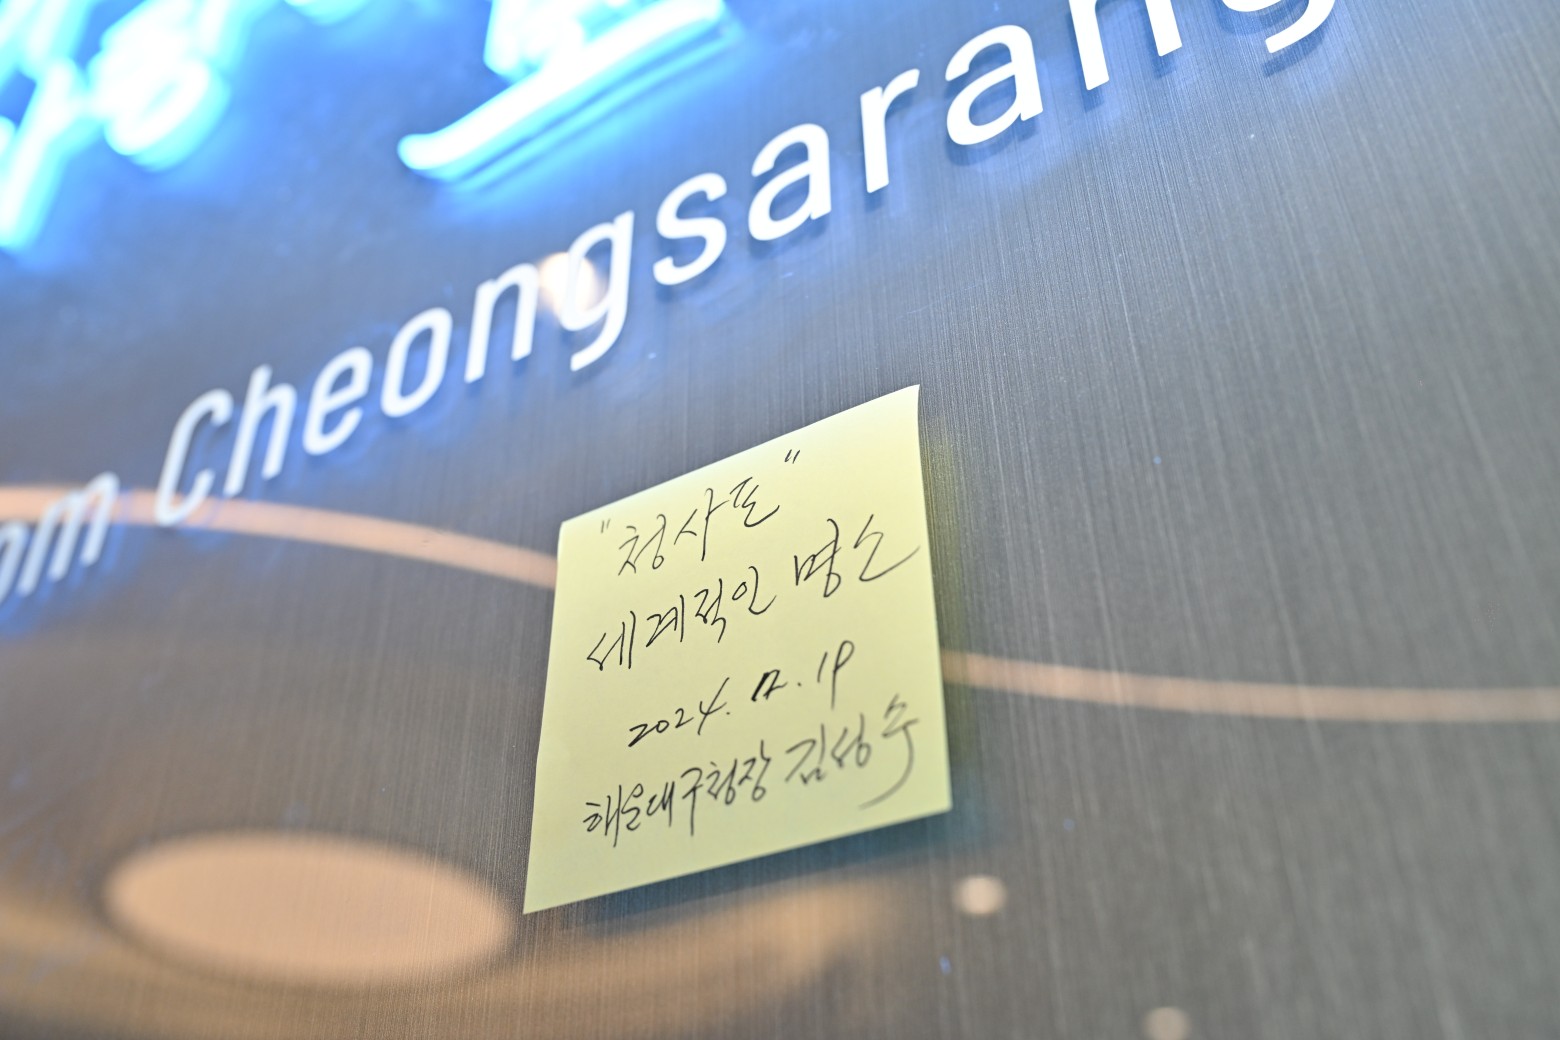 om Cheongsarang
"청사포"
세계적인 명소
2024. 12. 19
해운대구청장 김성수